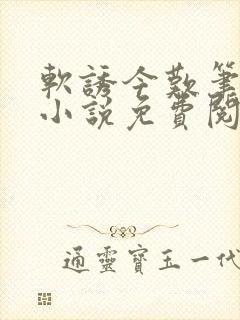 軟誘今歎筆
小說免費閱
通靈寶玉一代